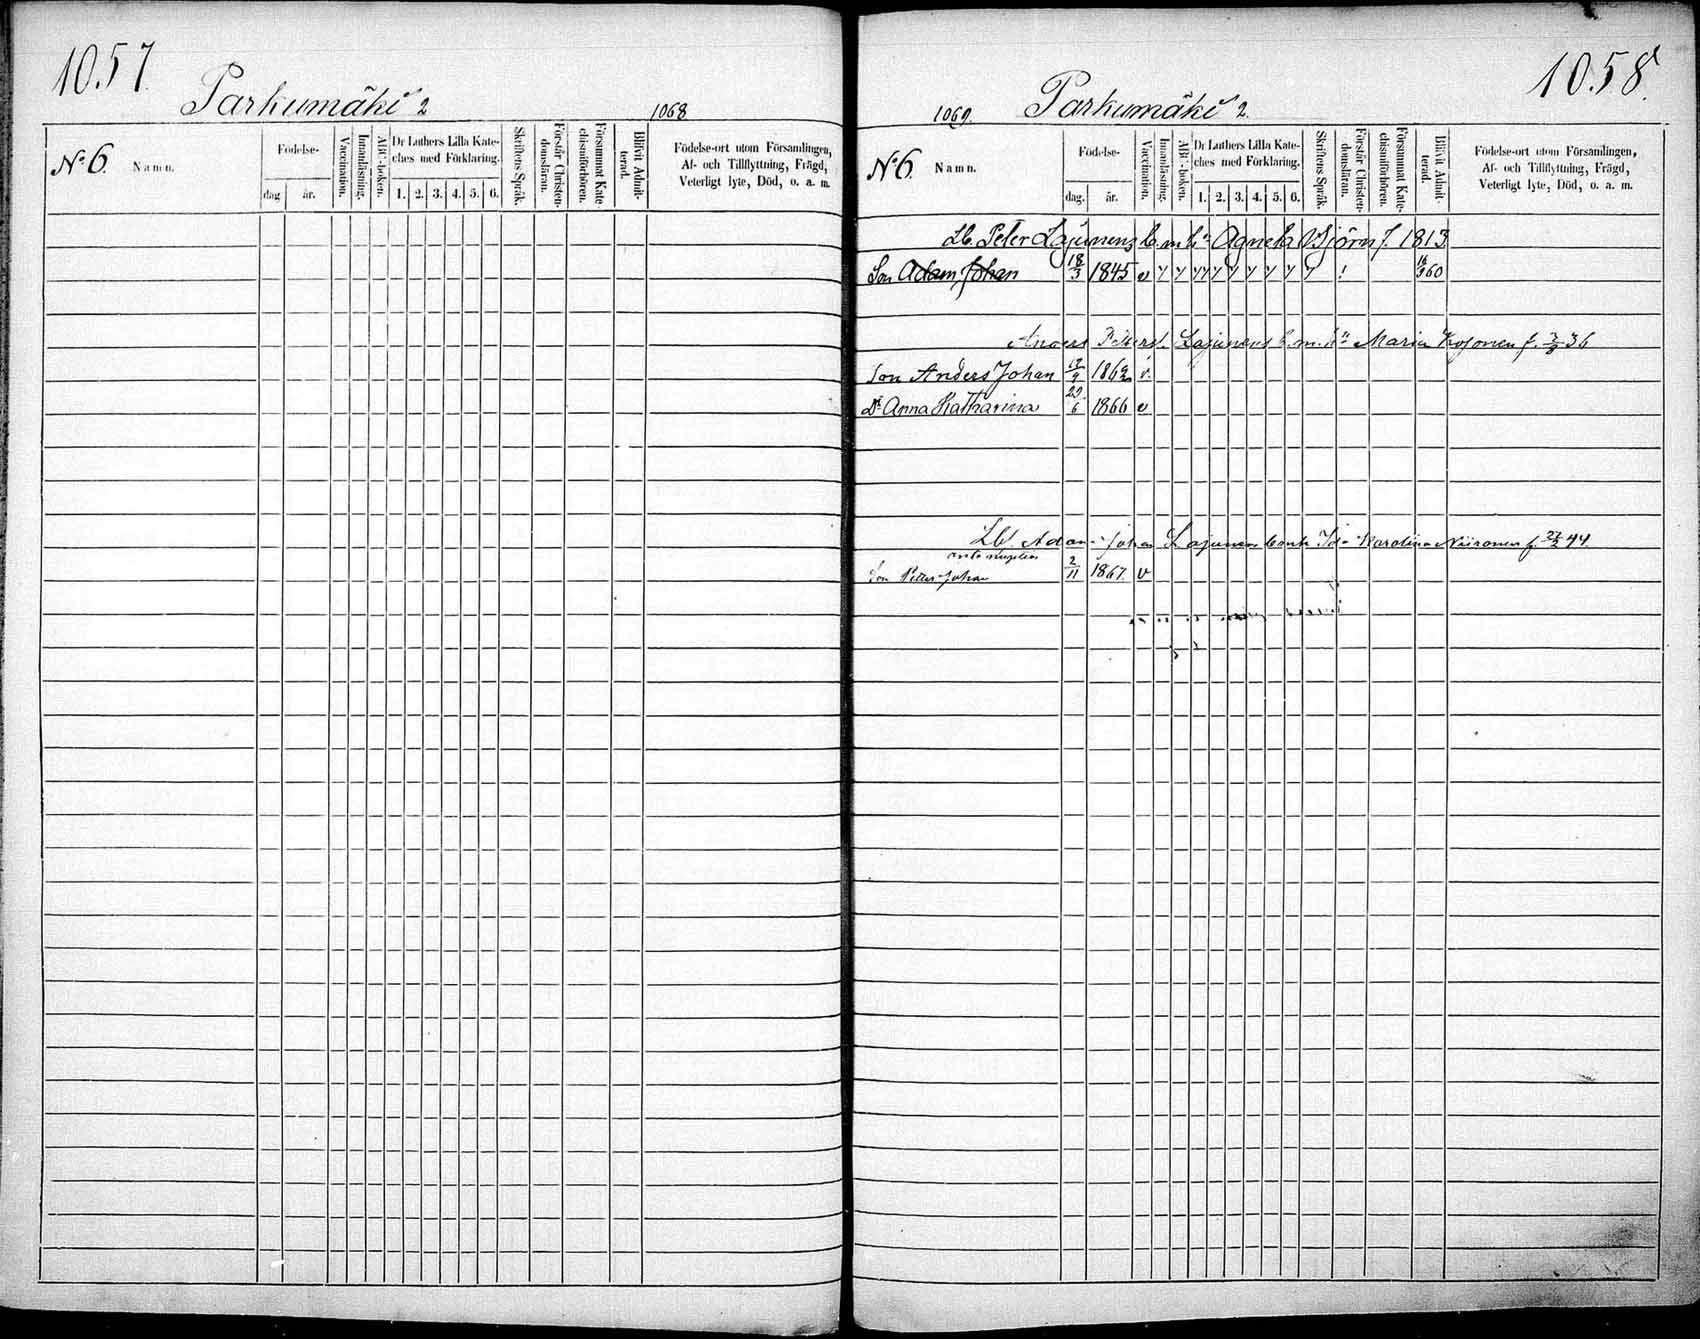 1057.
Parkumäki 2
1068
No 6.
Namn.
Födelse-
dag
år.
Vaccination.
Innanläsning.
ABC-boken.
Dr Luthers Lilla Kate-
ches med Förklaring.
1. 2. 3. 4. 5. 6.
Skriftens Språk.
Förstår Christen-
domsläran.
Försummat Kate-
chismiförhören.
Blifvit Admit-
terad.
Födelse-ort utom Församlingen,
Af- och Tillflyttning, Frägd,
Veterligt lyte, Död, o. a. m.
1058.
1069.
Parkumäki 2.
No 6.
Namn.
Födelse-
dag.
år.
Vaccination.
Innanläsning.
ABC-boken.
Dr Luthers Lilla Kate-
ches med Förklaring.
1. 2. 3. 4. 5. 6.
Skriftens Språk.
Förstår Christen-
domsläran.
Försummat Kate-
chismiförhören.
Blifvit Admit-
terad.
Födelse-ort utom Församlingen,
Af- och Tillflyttning, Frägd,
Veterligt lyte, Död, o. a. m.
Lb. Peter Lajunens b. m. h. Agneta Björn f. 1813
Son Adam Johan 18/3 1845 v 60
Anders Peters. Lajunens b. m. h. Maria Kosonen f. 36
Son Anders Johan 1862 v.
Dr Anna Katharina 29/6 1866 v
Lb. Adam Johan Lajunens b m h Ida Karolina Niiranen f. 44.
Son Petter Johan 2/11 1867. v